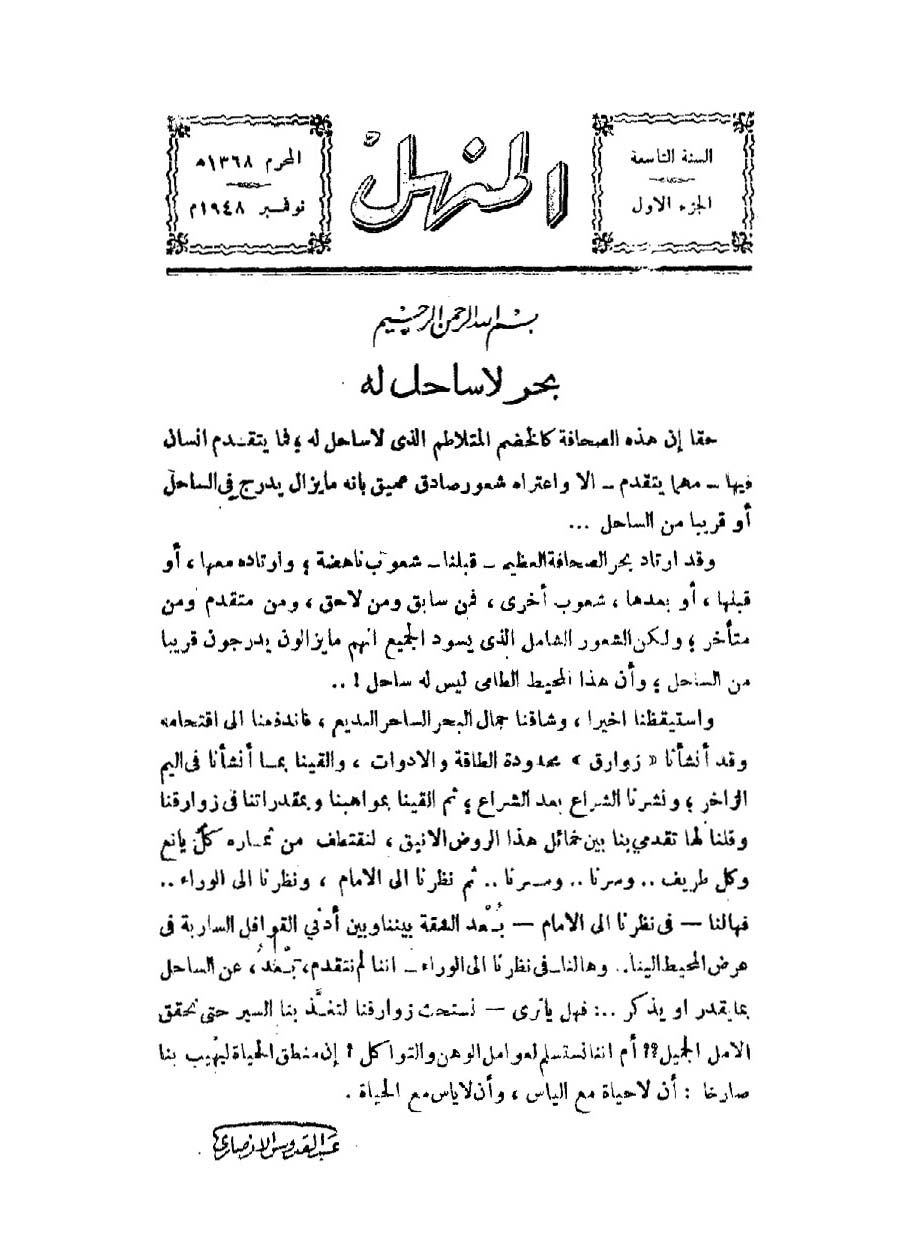 السنة التاسعة
الجزء الاول
المنهل
المحرم ١٣٦٨ه
نوفمبر ١٩٤٨م
بسم الله الرحمن الرحيم
بحر لا ساحل له
حقا إن هذه الصحافة كالخضم المتلاطم الذى لا ساحل له ؛ فما يتقدم انسان
فيها – مهما يتقدم – الا واعتراه شعور صادق عميق بانه مايزال يدرج فى الساحل
أو قريبا من الساحل ...
وقد ارتاد بحر الصحافة العظيم – قبلنا – شعوب ناهضة ؛ وارتاده معها ، أو
قبلها ، أو بعدها ، شعوب أخرى ، فمن سابق ومن لاحق ، ومن متقدم ومن
متأخر ؛ ولكن الشعور الشامل الذى يسود الجميع انهم مايزالون يدرجون قريبا
من الساحل ؛ وأن هذا المحيط الطامى ليس له ساحل ! ..
واستيقظنا اخيرا ، وشاقنا جمال البحر الساحر البديع ، فاندفعنا الى اقتحامه
وقد أنشأنا « زوارق » محدودة الطاقة والادوات ، والقينا بما أنشأنا فى اليم
الزاخر ؛ ونشرنا الشراع بعد الشراع ؛ ثم القينا بمواهبنا وبمقدراتنا فى زوارقنا
وقلنا لها تقدمي بنا بين خمائل هذا الروض الانيق ، لنقتطف من ثماره كلّ يانع
وكل طريف .. وسرنا .. وسرنا .. ثم نظرنا الى الامام ، ونظرنا الى الوراء ..
فهالنا – فى نظرنا الى الامام – بُعْد الشقة بيننا وبين أدني القوافل الساربة فى
عرض المحيط الينا .. وهالنا – فى نظرنا الى الوراء – اننا لم نتقدم، بَعْدُ ، عن الساحل
بما يقدر او يذكر ..: فهل ياترى – نستحث زوارقنا لتغذّ بنا السير حتى نحقق
الامل الجميل ؟؟ أم اننا نستسلم لعوامل الوهن والتواكل ؟ إن منطق الحياة ليهيب بنا
صارخا : أن لا حياة مع الياس ، وأن لا ياس مع الحياة .
عبد القدوس الانصاري